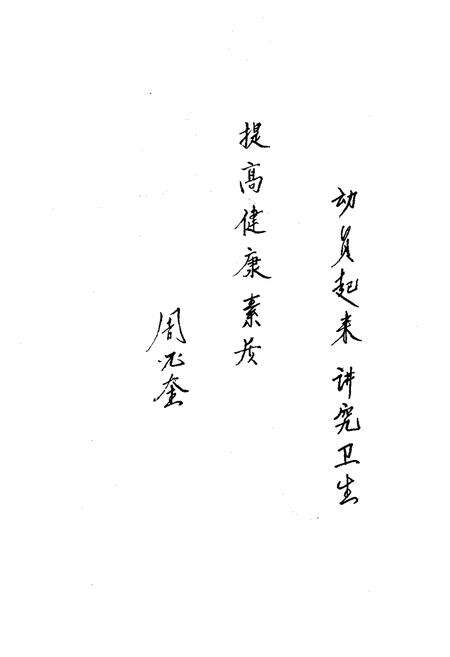 动员起来 讲究卫生
提高健康素质
周元奎